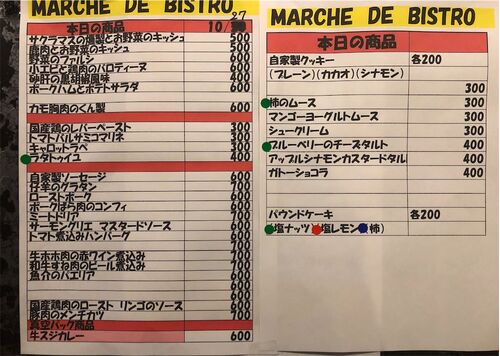 MARCHE DE BISTRO
27
本日の商品 10/
サクラマスの燻製とお野菜のキッシュ 500
鹿肉とお野菜のキッシュ 500
野菜のファルシ 600
小エビと鶏肉のバロティーヌ 600
砂肝の黒胡椒風味 400
ポークハムとポテトサラダ 600
カモ胸肉のくん製 600
国産鶏のレバーペースト 300
トマトバルサミコマリネ 300
キャロットラペ 300
ラタトゥイユ 400
自家製ソーセージ 600
仔羊のグラタン 700
ローストポーク 600
ポークばら肉のコンフィ 700
ミートドリア 700
サーモングリエ マスタードソース 600
トマト煮込みハンバーグ 700
牛ホホ肉の赤ワイン煮込み 700
和牛すね肉のビール煮込み 700
魚介のパエリア 600
600
国産鶏肉のロースト リンゴのソース 600
豚肉のメンチカツ 700
真空パック商品
牛スジカレー 600
MARCHE DE BISTRO
本日の商品
自家製クッキー 各200
(プレーン)(カカオ)(シナモン)
300
柿のムース 300
マンゴーヨーグルトムース 300
シュークリーム 300
ブルーベリーのチーズタルト 400
アップルシナモンカスタードタル 400
ガトーショコラ 400
パウンドケーキ 各200
(塩ナッツ)(塩レモン)(柿)